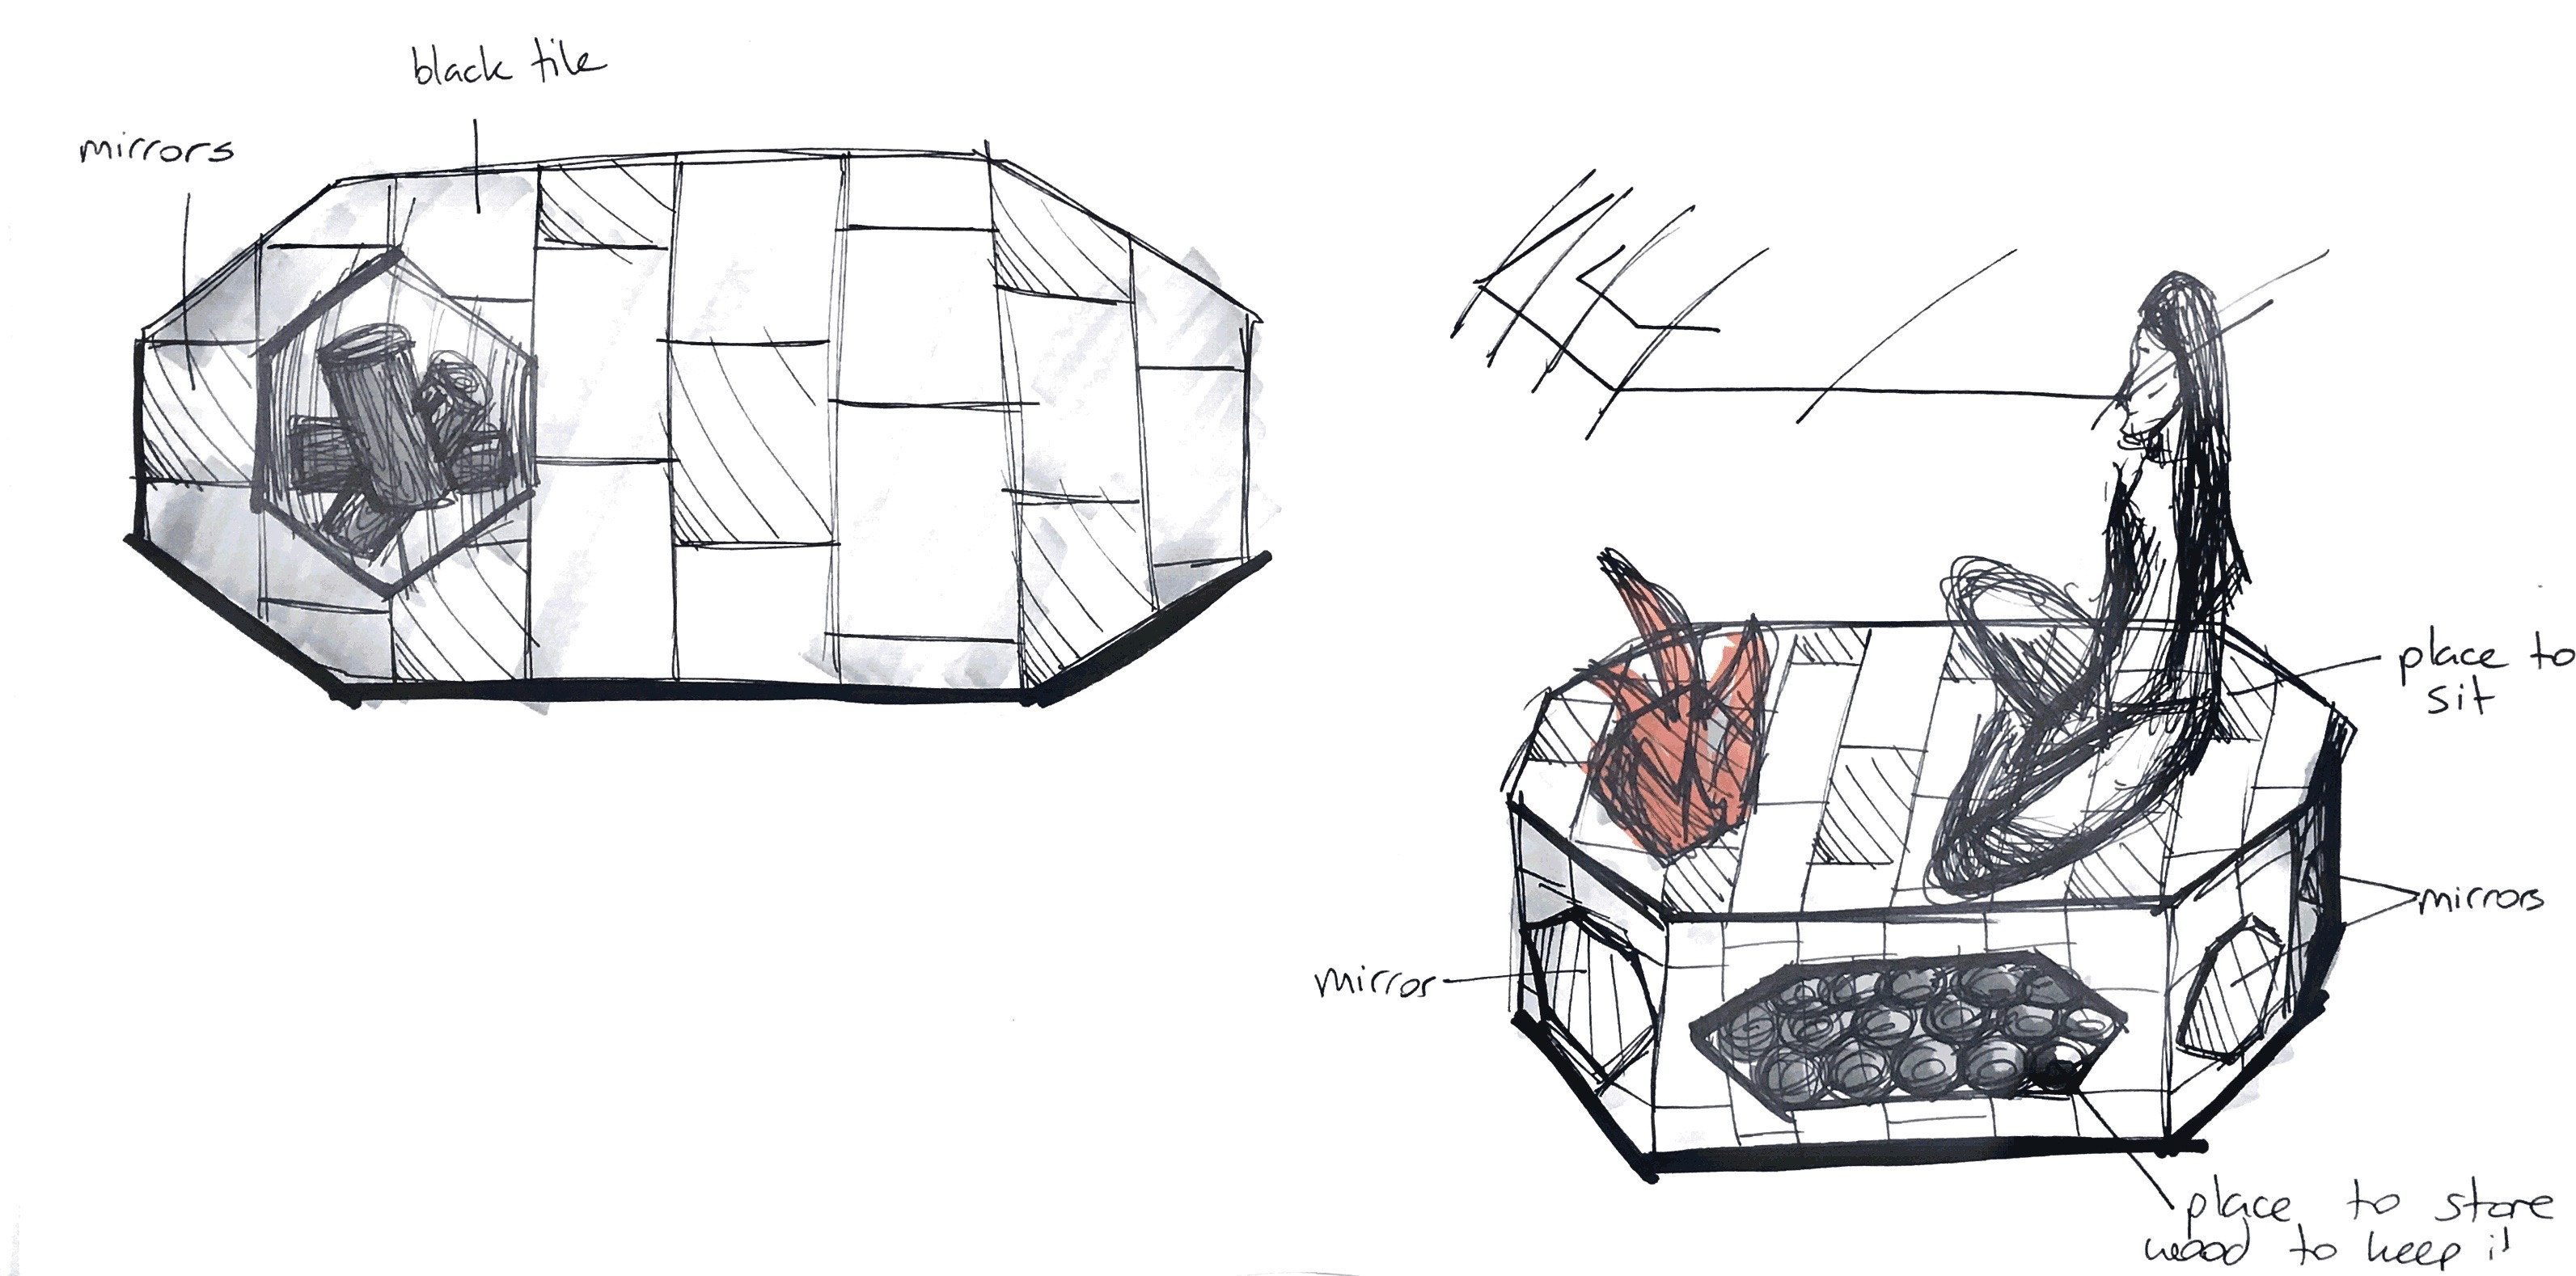 black tile
mirrors
place to
sit
mirrors
mirror
place to store
wood to keep it